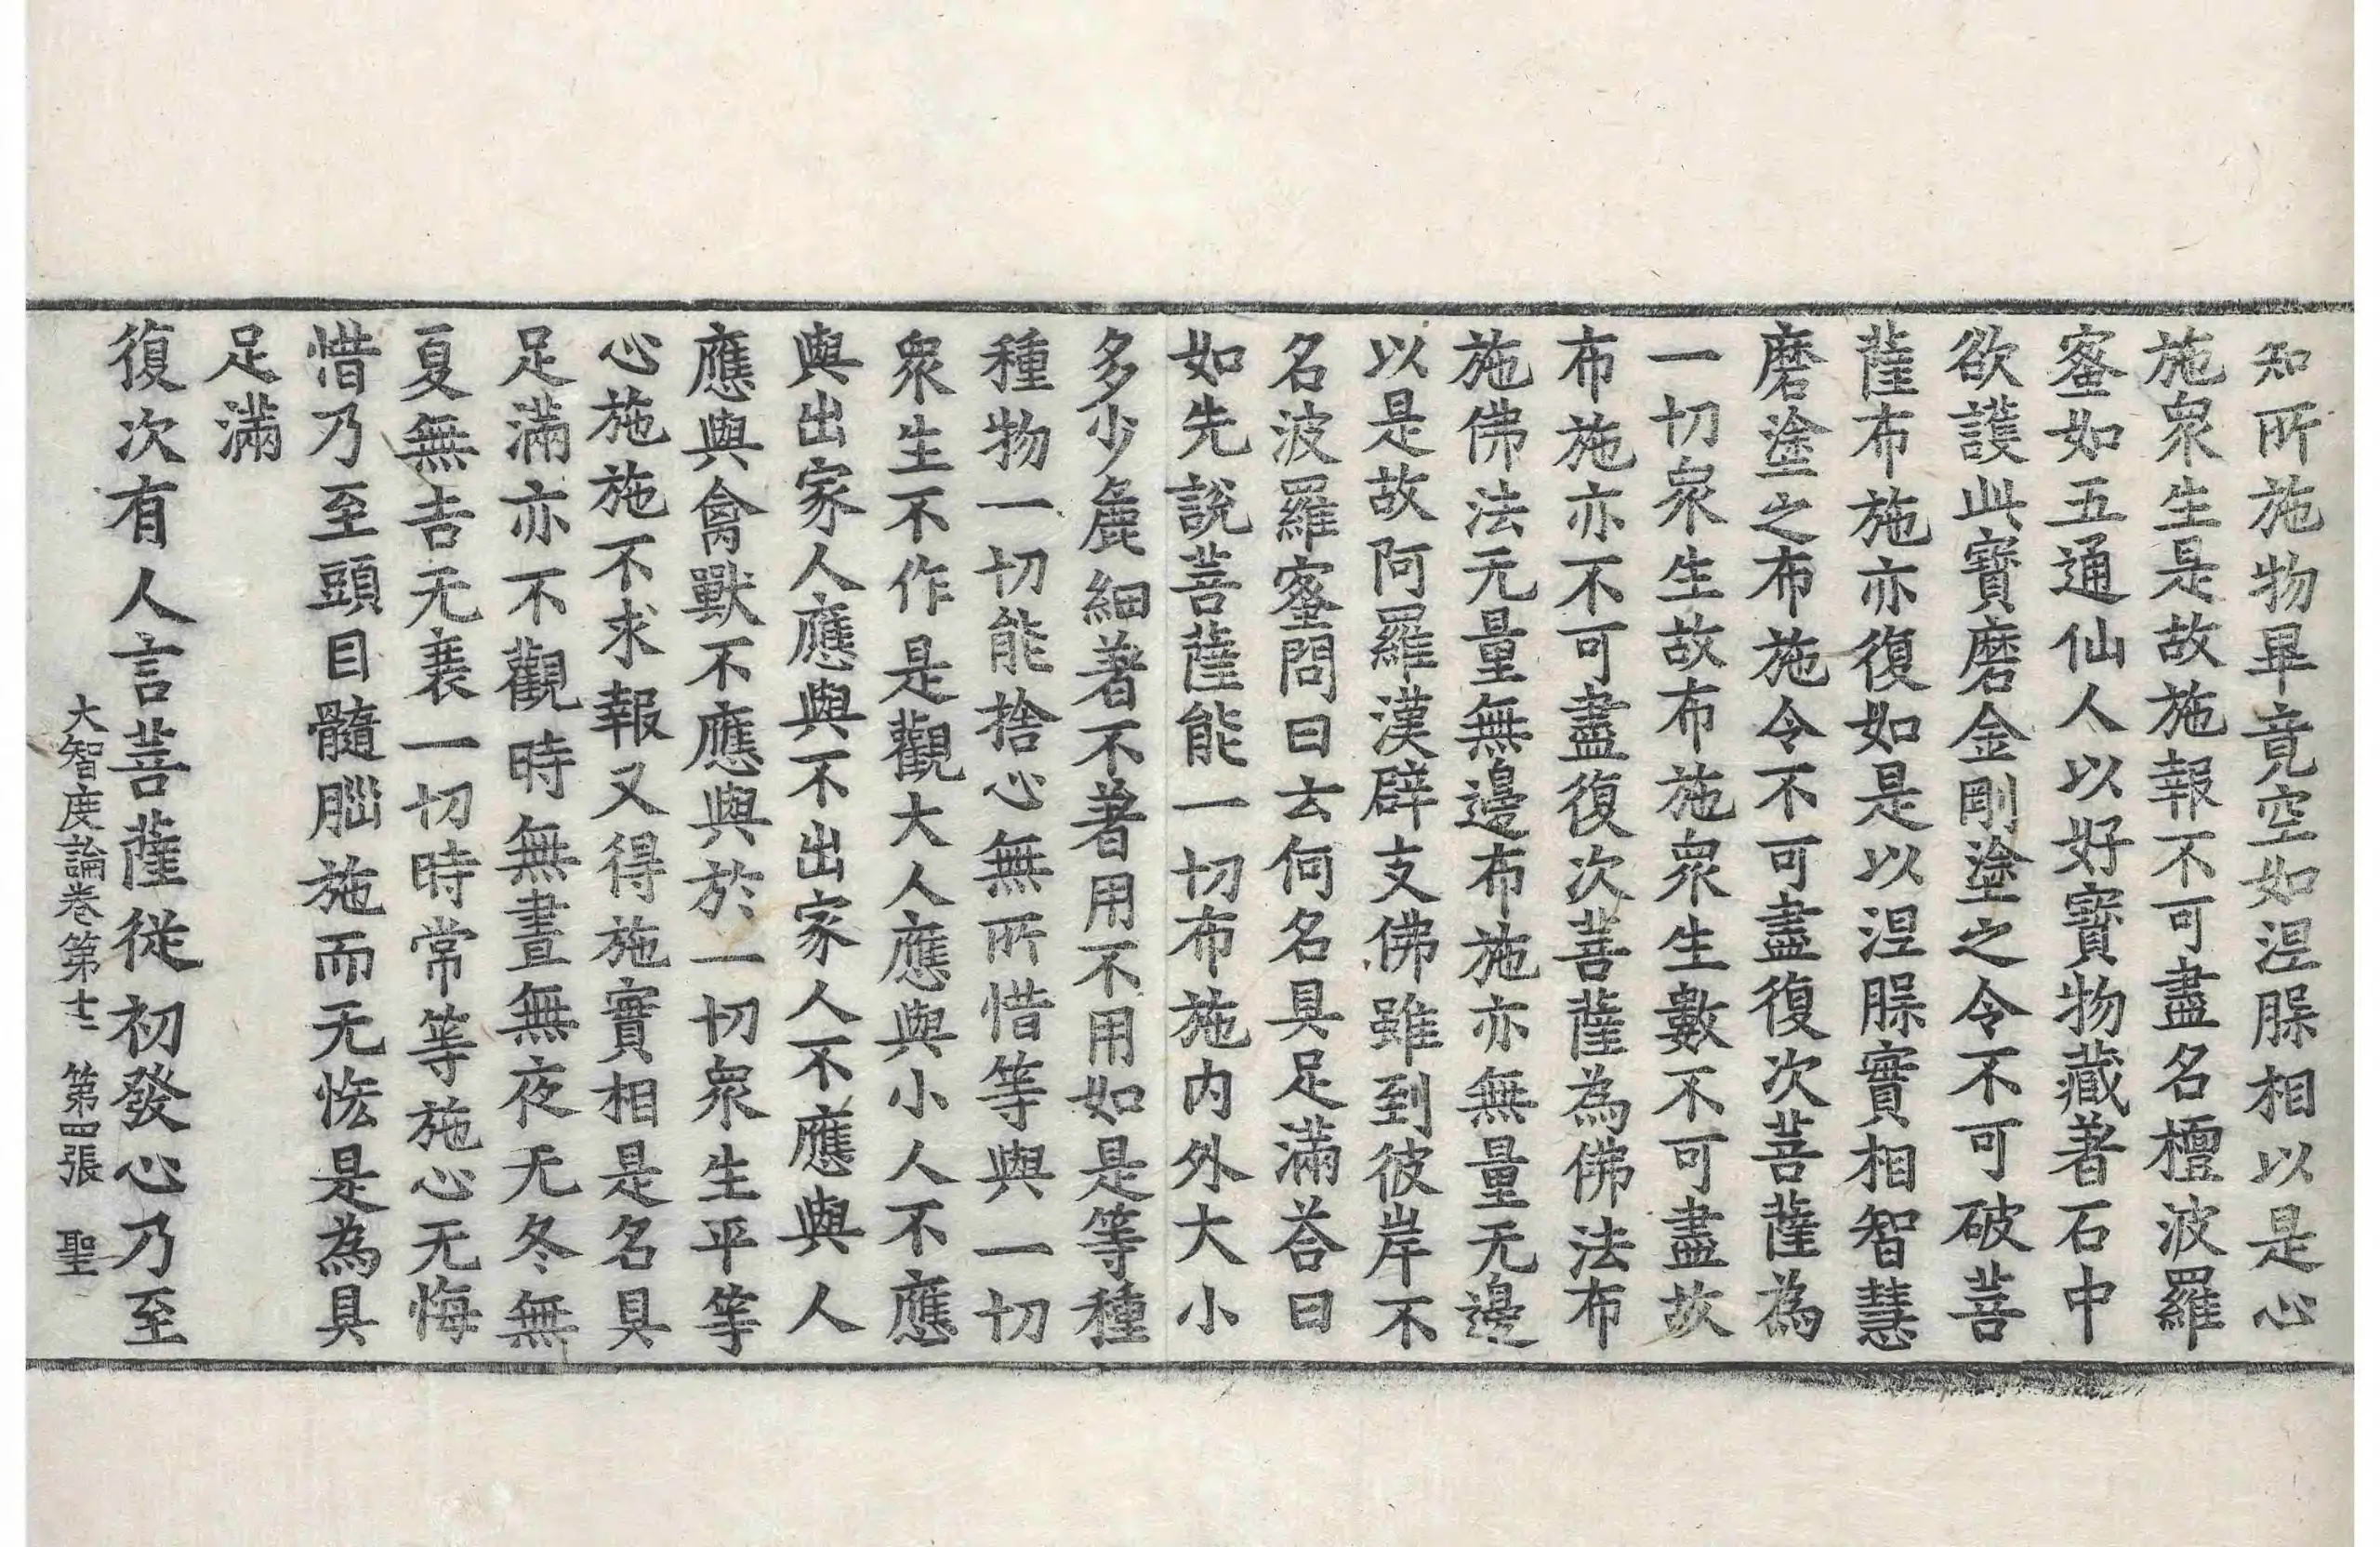 知所施物畢竟空如涅槃相以是心
施衆生是故施報不可盡名檀波羅
蜜如五通仙人以好寶物藏著石中
欲護此寶磨金剛塗之令不可破菩
薩布施亦復如是以涅槃實相智慧
磨塗之布施令不可盡復次菩薩為
一切衆生故布施衆生數不可盡故
布施亦不可盡復次菩薩為佛法布
施佛法无量無邊布施亦無量无邊
以是故阿羅漢辟支佛雖到彼岸不
名波羅蜜問曰云何名具足滿荅曰
如先說菩薩能一切布施内外大小
多少麁細著不著用不用如是等種
種物一切能捨心無所惜等與一切
衆生不作是觀大人應與小人不應
與出家人應與不出家人不應與人
應與禽獸不應與於一切衆生平等
心施施不求報又得施實相是名具
足滿亦不觀時無晝無夜无冬無
夏無吉无衰一切時常等施心无悔
惜乃至頭目髓腦施而无恡是為具
足滿
復次有人言菩薩從初發心乃至
大智度論卷第十二 第四張 聖